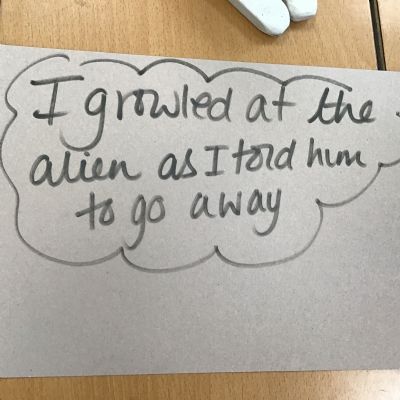 I growled at the
alien as I told him
to go away